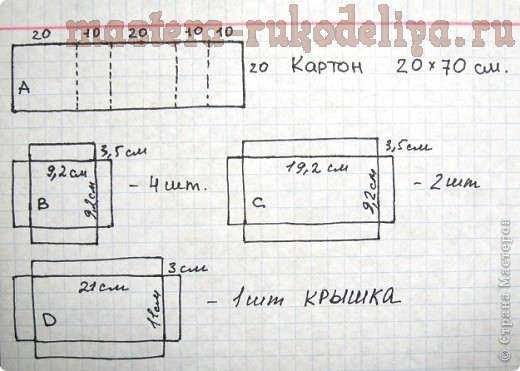 masters-rukodeliya.ru
20 10 20 10 10
20 Картон 20×70 см.
A
3,5 см
9,2 см
9,2 см
B
- 4 шт.
3,5 см
19,2 см
9,2 см
C
- 2 шт
3 см
21 см
11 см
D
- 1 шт КРЫШКА
© Страна Мастеров